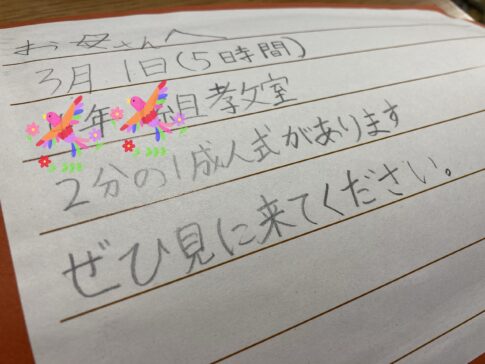 お母さんへ
3月1日(5時間)
年 組孝攵室
2分の1成人式があります
ぜひ見に来てください。